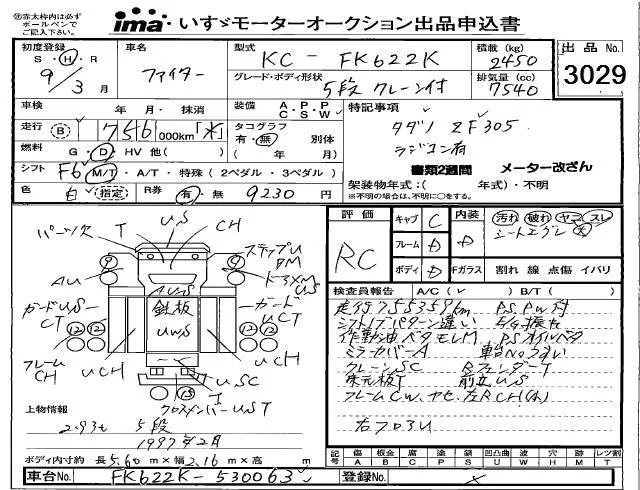 ※赤太枠内は必ず
ボールペンで
ご記入下さい。
ima・いすゞモーターオークション出品申込書
初度登録 S・H・R 9/3月
車名 ファイター
型式 KC-FK622K
積載(kg) 2450
出品No. 3029
グレード・ボディ形状 5段クレーン付
排気量(cc) 7540
車検 年 月・抹消
装備 A・P・P C・S・W
特記事項
走行 B 756,000km「水」
タコグラフ 有・無 別体 ( 年 月)
タダノ ZF305
ラジコン有
燃料 G・D・HV 他( )
書類2週間 メーター改ざん
シフト F6 M/T・A/T・特殊(2ペダル・3ペダル)
架装物年式:( 年式)・不明
※不明の場合は、不明に〇をする。
色 白(指定) R券 有・無 9230円
評価 RC
キャブ C
フレーム D
ボディ D
内装 D
汚れ 破れ ヤニ スレ
シートエグレ 大
Fガラス 割れ 線 点傷 イバリ
パーツ欠 T US CH
ステップU
DM
AU 9 9
ドアXM
US
AUS
ガードUS
CT
鉄板
UWS
ガード
UCT
12 12 12 12
フレーム
CH
UCH UCH
USC
15 T
クロスメンバーUST
検査員報告 A/C( ) B/T( )
走行755359km PS,PW付
シフトノブパターン違い E/G振れ
作動油ベタモレM PSオイルベタ
ミラーカバーA 車台Noうすい
クレーンSC RフェンダーT
床元板T 前立US
フレームCW、ヤセ、左RCH(小)
右フロ3U
上物情報
2.93t 5段
1997年2月
ボディ内寸約 長5.60m×幅2.16m×高 m
記号 傷 A 板金 B 腐 C 塗 P 錆 S 凹凸曲 U 波 W 穴 H 欠 M 天 T レツ割
車台No. FK622K-530063
登録No.